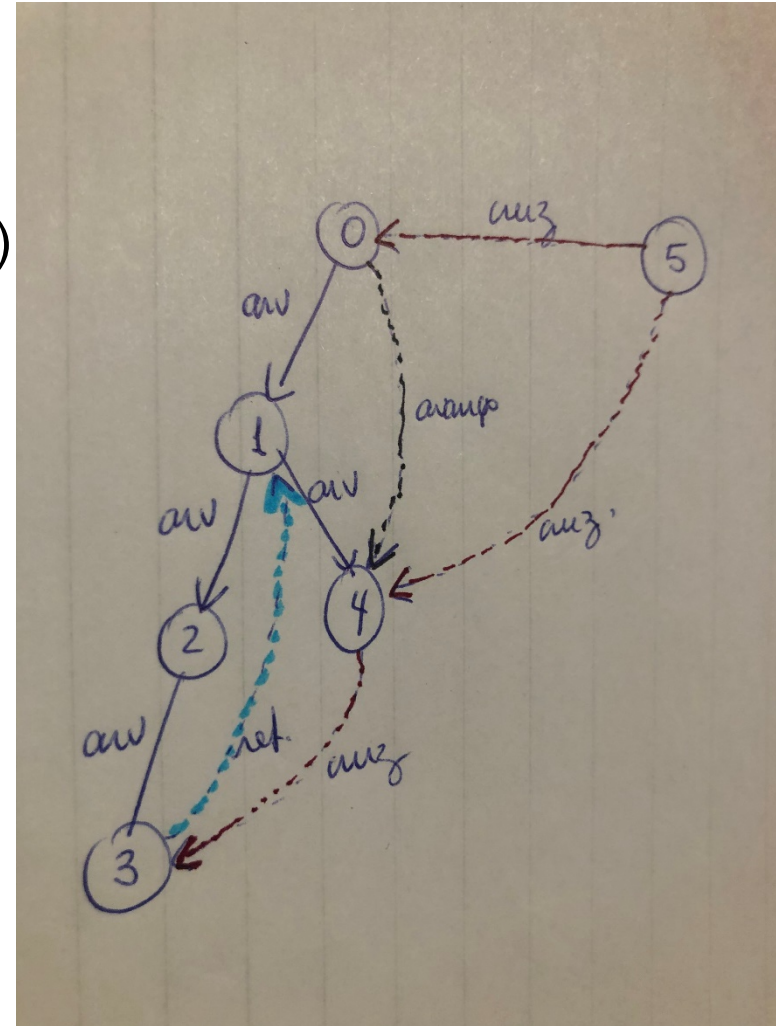 )
cruz
0
5
arv
avanço
1
arv
arv
cruz.
4
2
arv
ret.
cruz
3